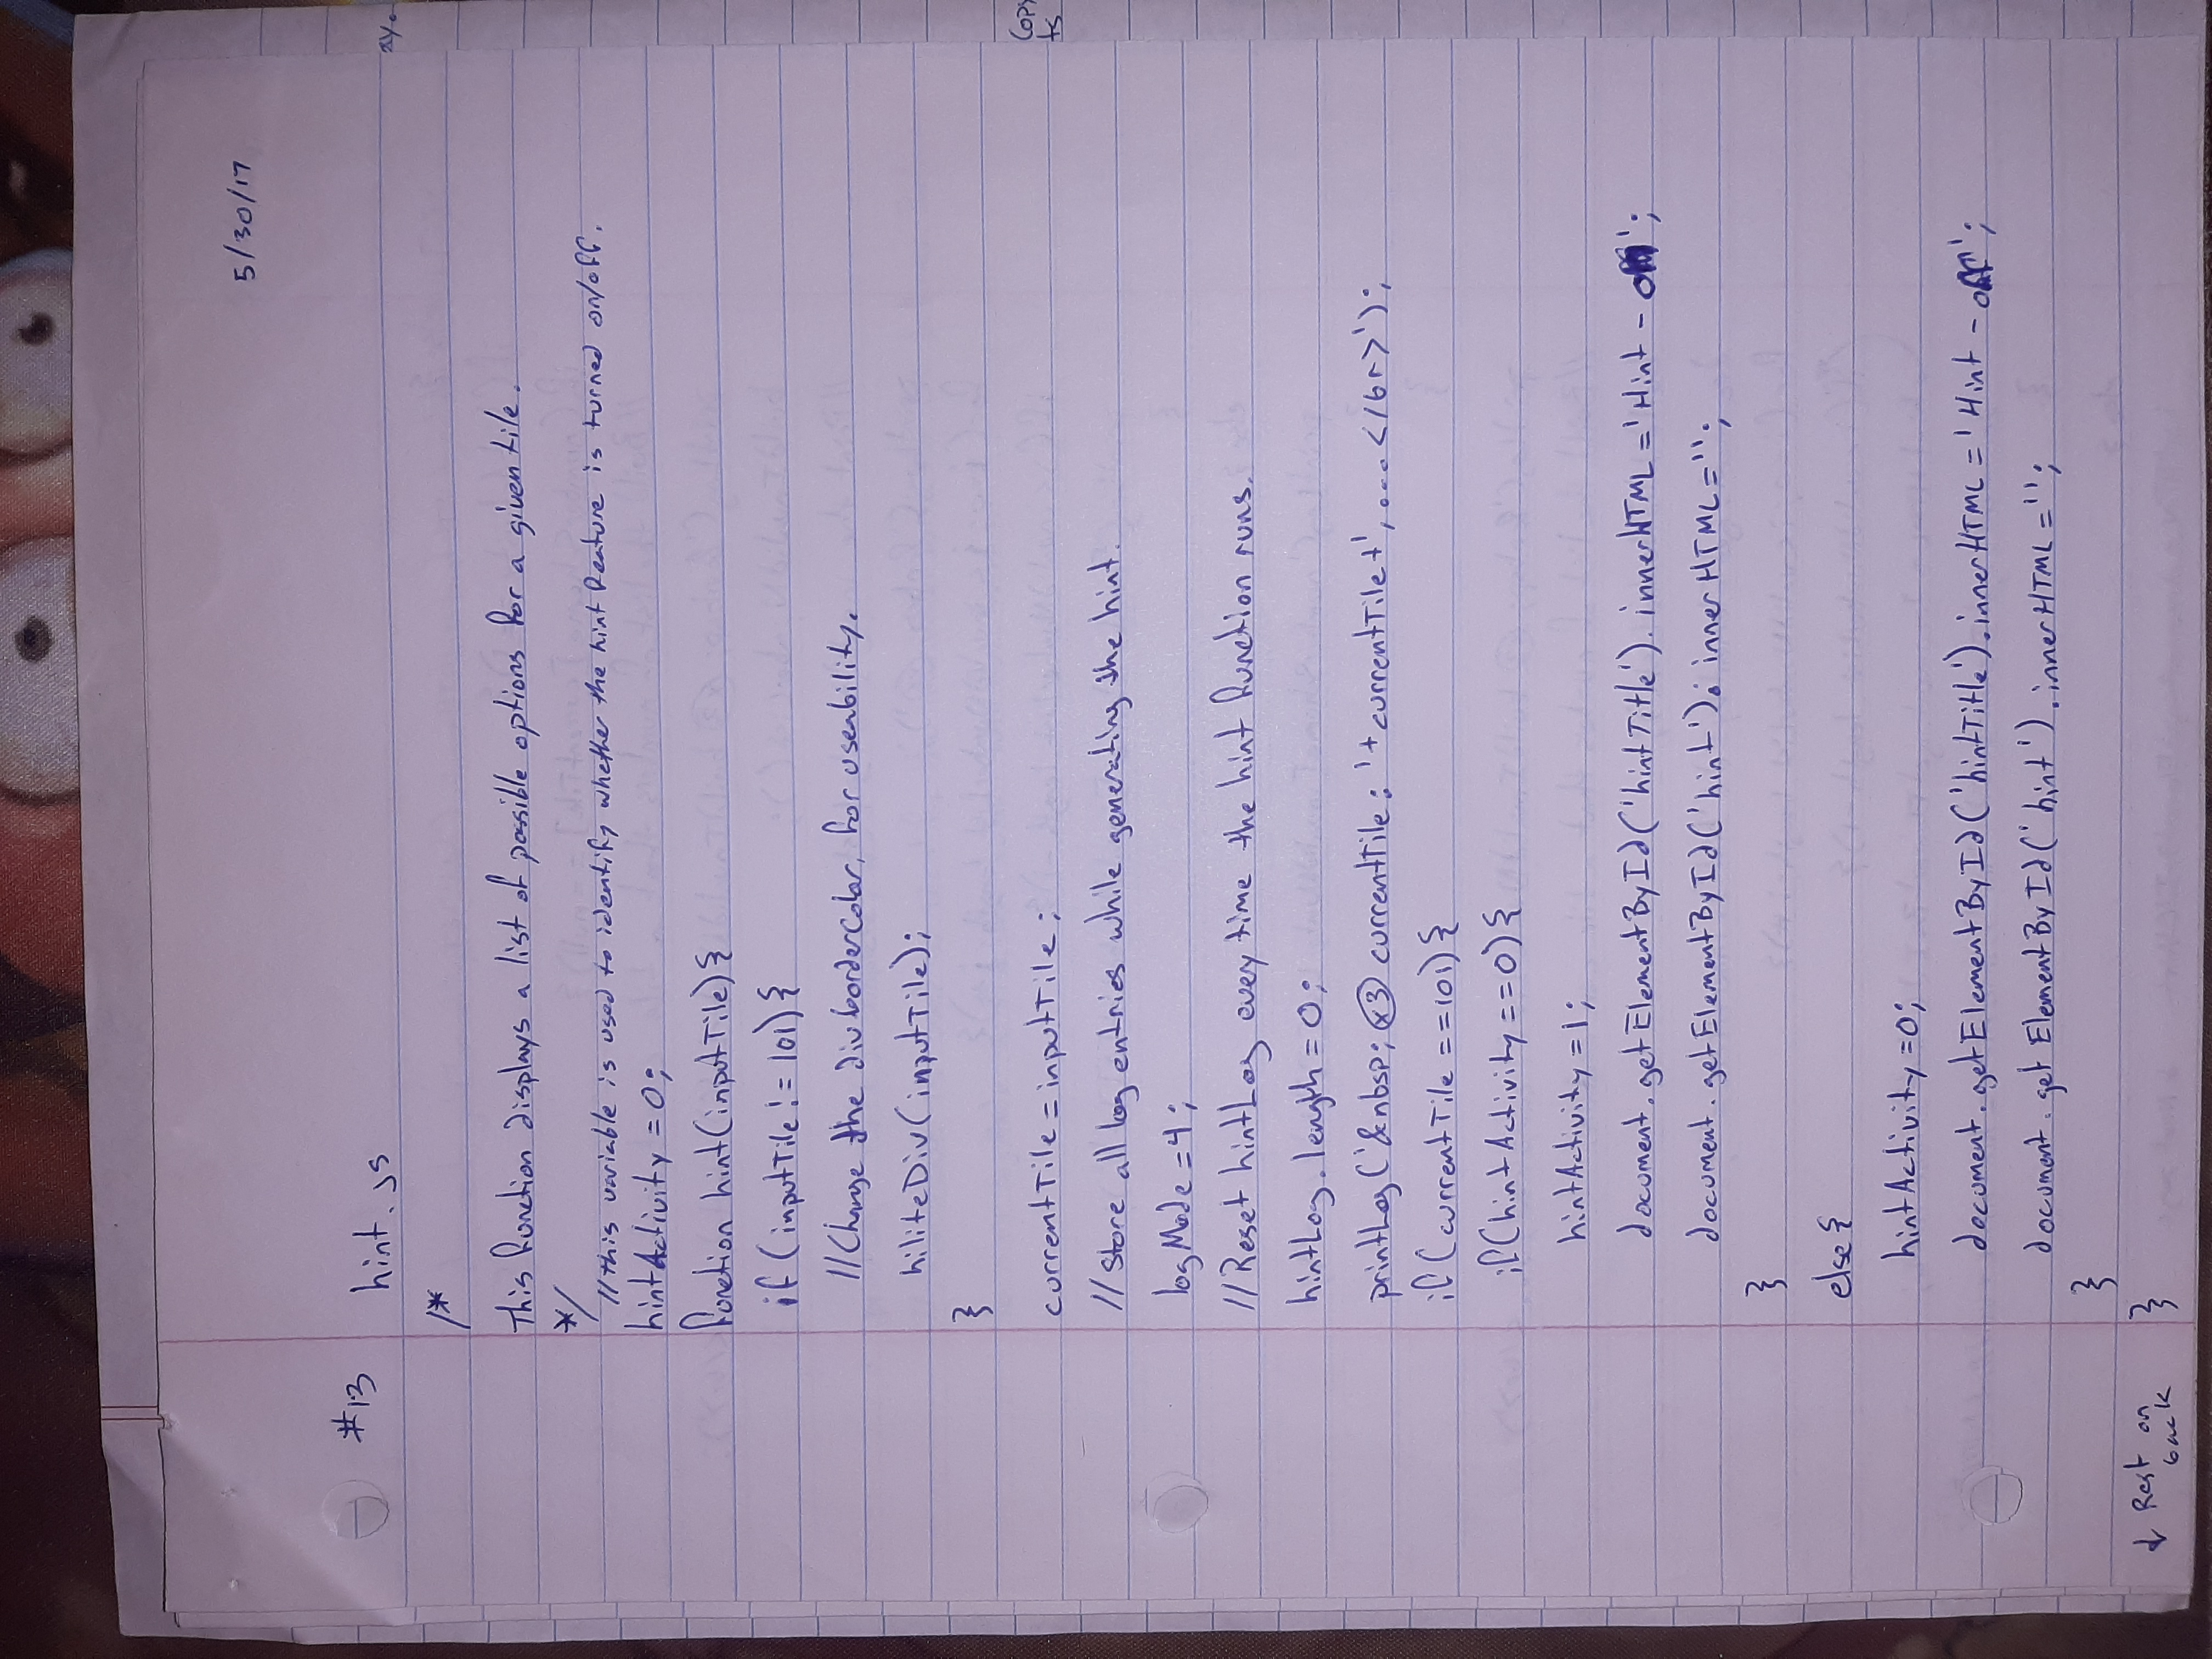 5/30/17
#13
hint.js
/*
This function displays a list of possible options for a given tile.
*/
//this variable is used to identify whether the hint feature is turned on/off.
hintActivity = 0;
function hint(inputTile){
if (inputTile != 101){
//Change the div bordercolor, for useability.
hiliteDiv(inputTile);
}
currentTile = inputTile;
//Store all log entries while generating the hint.
logMode = 4;
//Reset hintLog every time the hint function runs.
hintLog.length = 0;
printLog('&nbsp; x3 currentTile: '+currentTile+',... </br>');
if (currentTile ==101){
if(hintActivity==0){
hintActivity = 1;
document.getElementById('hintTitle').innerHTML = 'Hint - ';
document.getElementById('hint'). innerHTML = '';
}
else{
hintActivity =0;
document.getElementById('hintTitle').innerHTML = 'Hint - off';
document.getElementById('hint').innerHTML = '';
}
↓ Rest on
back
}
ay.
Copy
ts